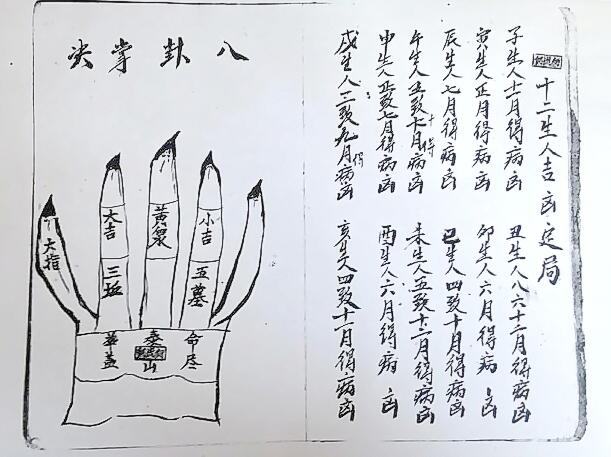 十二生人吉凶定局
子生人十一月得病凶
丑生人八六十二月得病凶
寅生人正月得病凶
卯生人六月得病凶
辰生人七月得病凶
巳生人四致十月得病凶
午生人五致十月得病凶
未生人五致十二月得病凶
申生人正致七月得病凶
酉生人六月得病凶
戌生人三致九月得病凶
亥生人四致十一月得病凶
八卦掌决
大指
大吉
三坵
黄泉
小吉
五墓
命尽
泰山
华盖